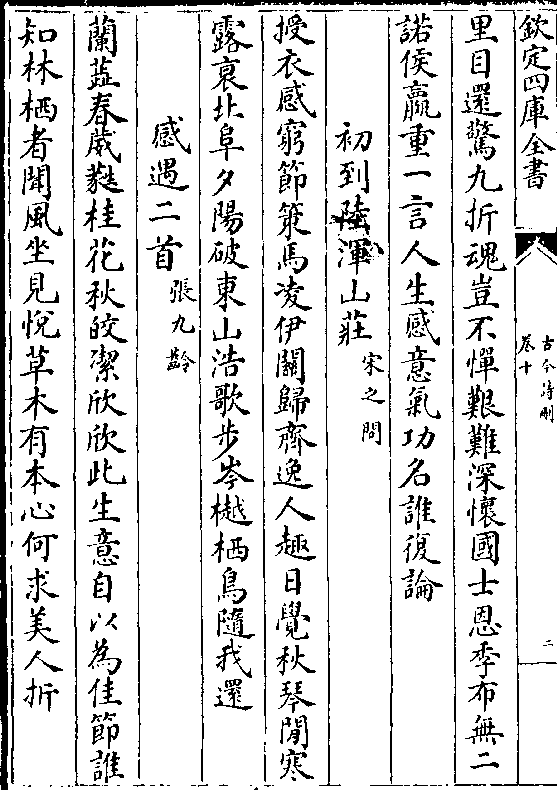 欽定四庫全書
古今詩刪
卷十
二
里目還驚九折魂豈不憚艱難深懷國士恩季布無二
諾侯嬴重一言人生感意氣功名誰復論
初到陸渾山莊
宋之問
授衣感窮節策馬凌伊關歸齊逸人趣日覺秋琴閒寒
露衰北阜夕陽破東山浩歌步岑樾栖鳥隨我還
感遇二首
張九齡
蘭蕋春葳蕤桂花秋皎潔欣欣此生意自以為佳節誰
知林栖者聞風坐見悅草木有本心何求美人折